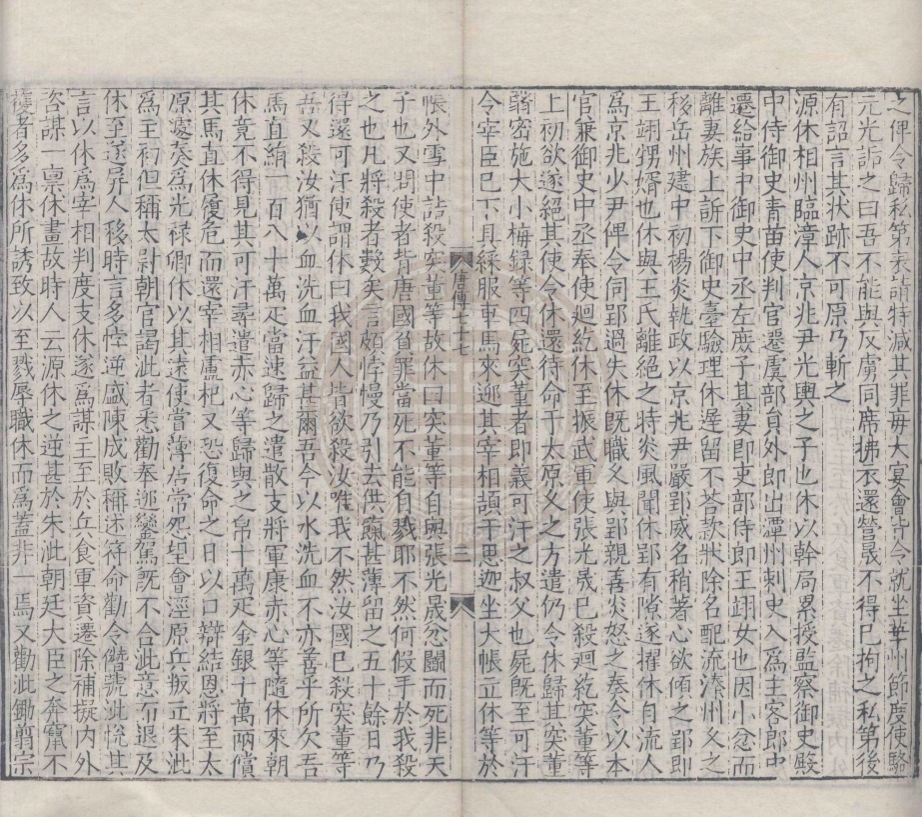 之俾令歸私第來請特減其罪每大宴會皆令就坐華州節度使駱
元光詬之曰吾不能與反虜同席拂衣還營晟不得已拘之私第後
有詔言其狀跡不可原乃斬之
源休相州臨漳人京兆尹光輿之子也休以幹局累授監察御史殿
中侍御史青苗使判官遷虞部員外郎出潭州刺史入爲主客郎中
遷給事中御史中丞左庶子其妻即吏部侍郎王翊女也因小忿而
離妻族上訴下御史臺驗理休遲留不荅款狀除名配流溱州乆之
移岳州建中初楊炎執政以京兆尹嚴郢威名稍著心欲傾之郢即
王翊甥婿也休與王氏離絕之特炎風聞休郢有隙遂擢休自流人
爲京兆少尹俾令伺郢過失休既職乆與郢親善炎怒之奏令以本
官兼御史中丞奉使迴紇休至振武軍使張光晟已殺迴紇突董等
上初欲遂絕其使令休還待命于太原乆之方遣仍令休歸其突董
翳密施大小梅録等四屍突董者即義可汗之叔父也屍既至可汗
令宰臣已下具綵服車馬來迎其宰相頡干思迦坐大帳立休等於
帳外雪中詰殺突董等故休曰突董等自與張光晟忿鬬而死非天
子也又問使者背唐國負罪當死不能自戮耶不然何假手於我殺
之也凡將殺者數矣言頗悖慢乃引去供餼甚薄留之五十餘日乃
得還可汗使謂休曰我國人皆欲殺汝唯我不然汝國已殺突董等
吾又殺汝猶以血洗血汙益甚爾吾今以水洗血不亦善乎所欠吾
馬直絹一百八十萬疋當速歸之遣散支將軍康赤心等隨休來朝
休竟不得見其可汗尋遣赤心等歸與之帛十萬疋金銀十萬兩償
其馬直休履危而還宰相盧杞又恐復命之日以口辯結恩將至太
原遽奏爲光祿卿休以其遠使當薄居常怨望會涇原兵叛立朱泚
爲主初但稱太尉朝官謁泚者悉勸奉迎鑾駕既不合泚意而退及
休至遂屏人移時言多悖逆盛陳成敗稱述符命勸令僭號泚悅其
言以休爲宰相判度支休遂爲謀主至於兵食軍資遷除補擬內外
咨謀一稟休畫故時人云源休之逆甚於朱泚朝廷大臣之奔竄不
獲者多爲休所誘致以至戮辱職休而爲蓋非一焉又勸泚鋤翦宗
唐傳七十七
二